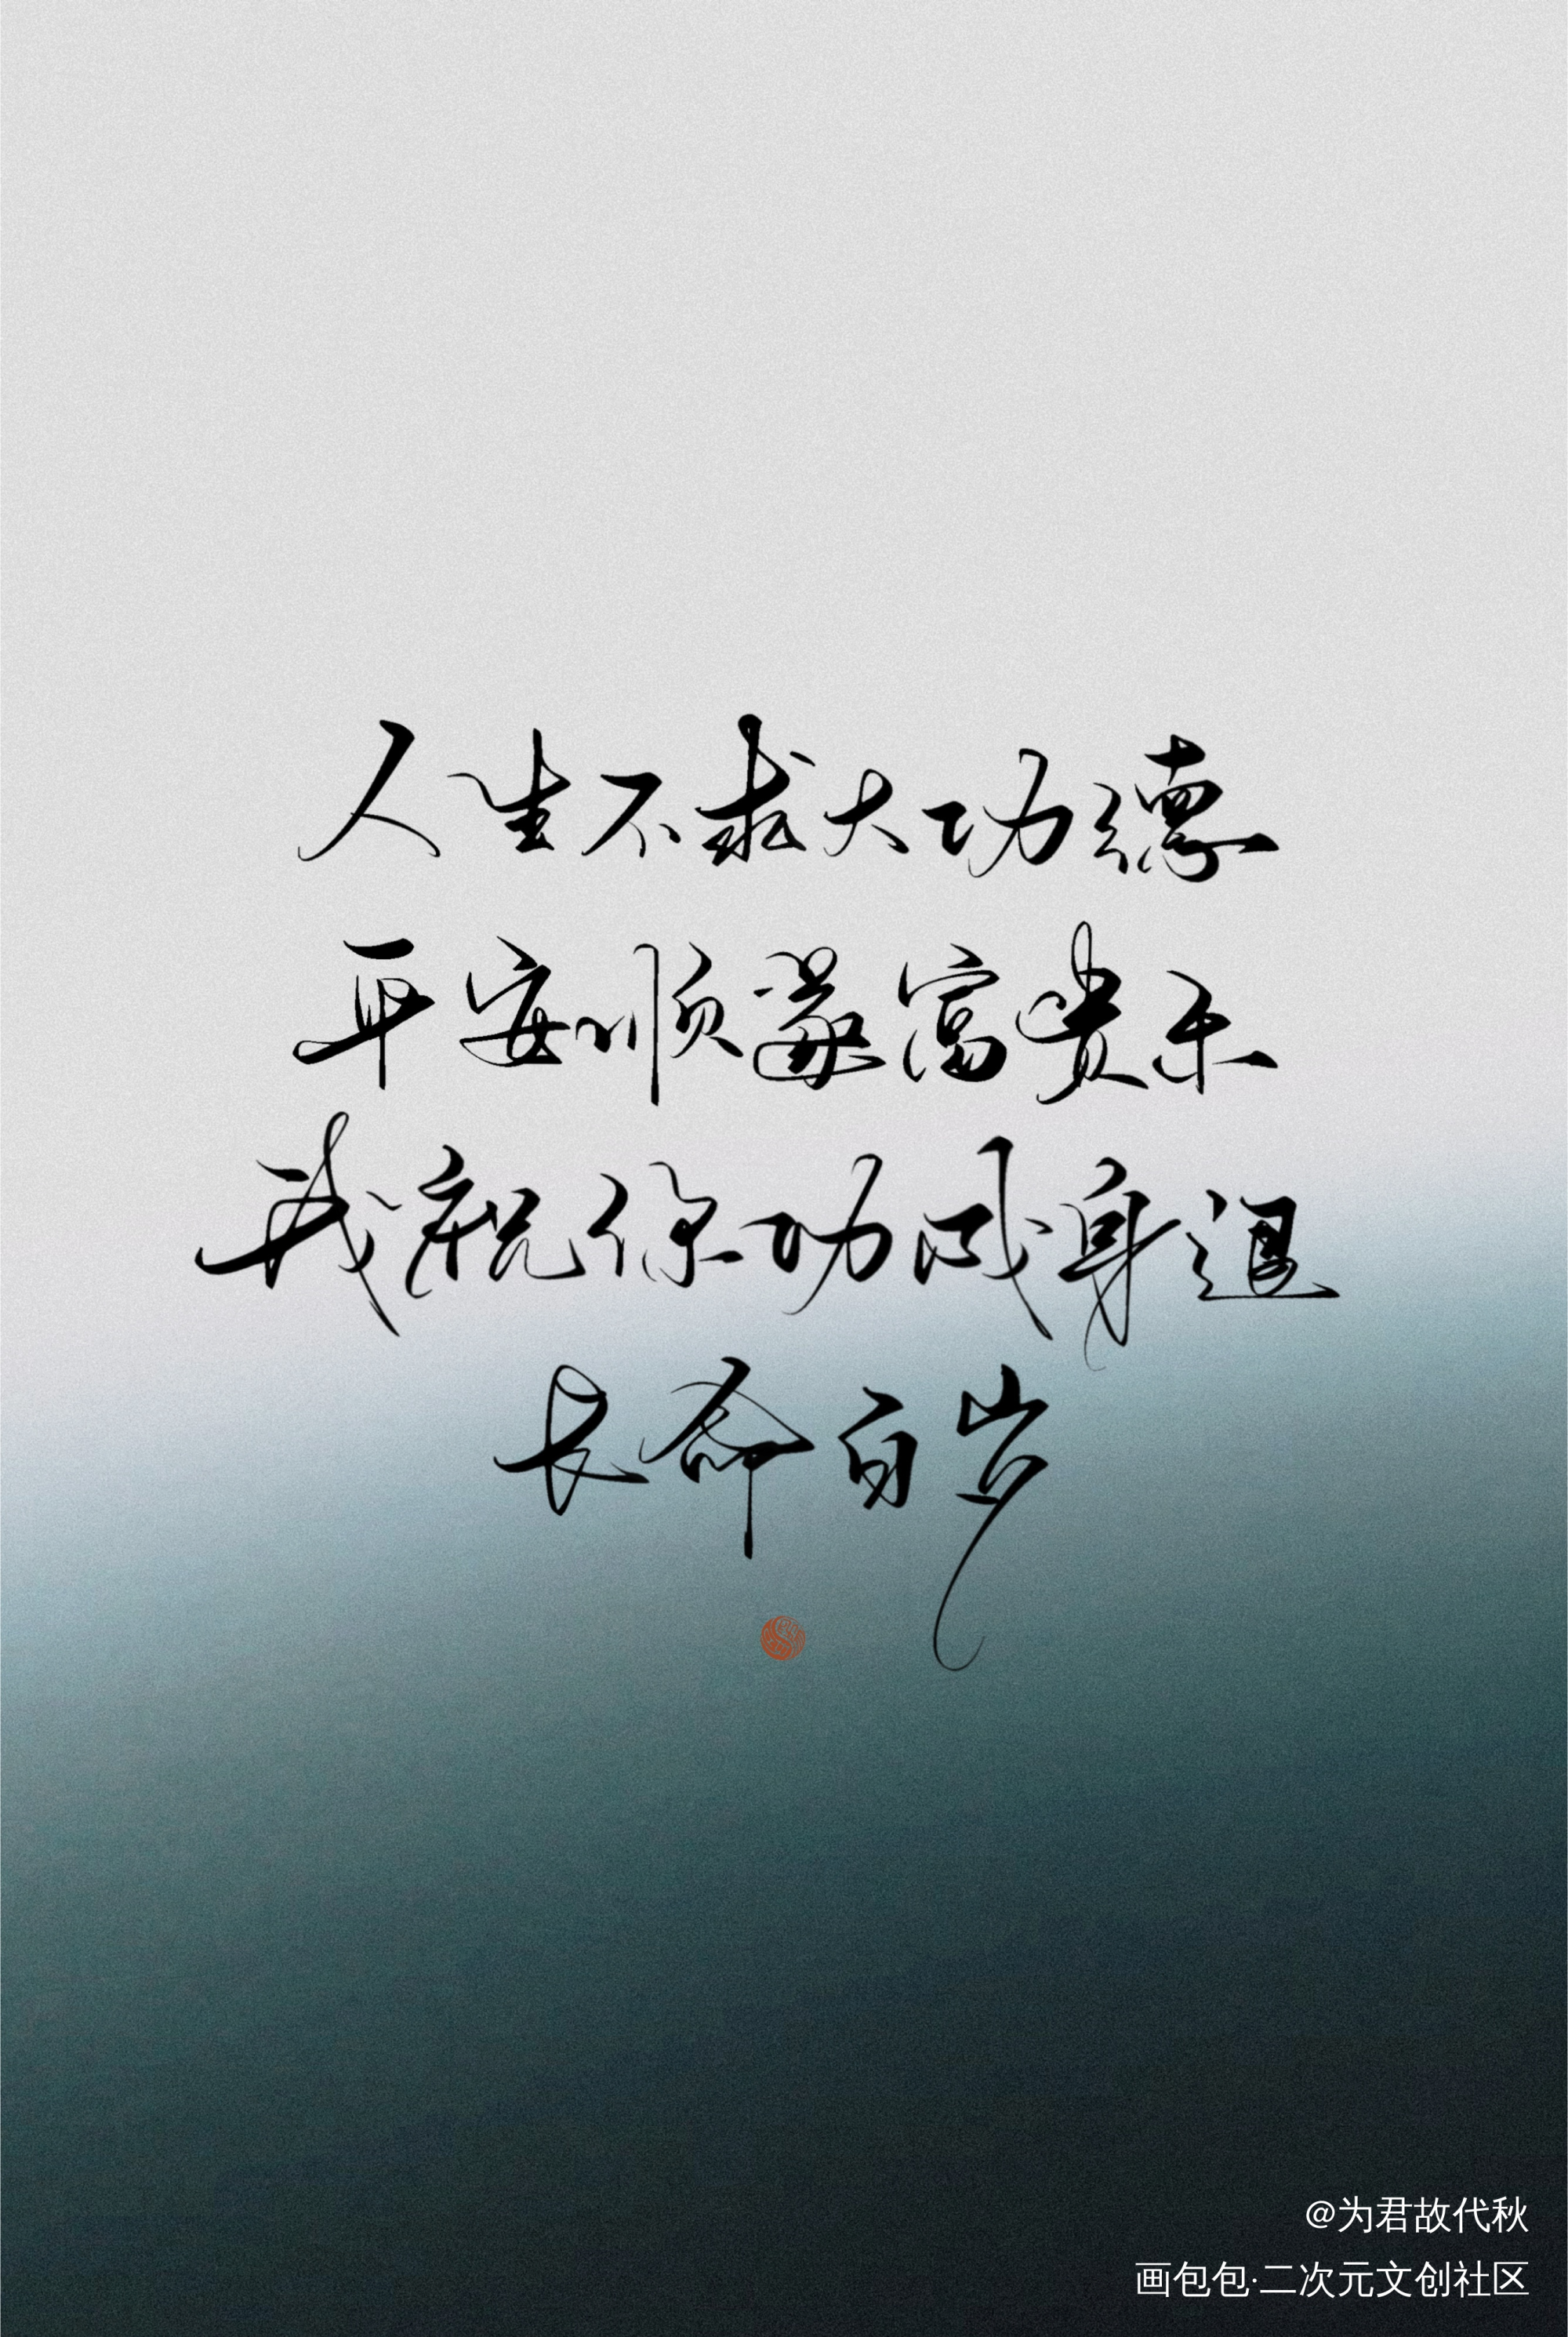 人生不求大功德
平安顺遂富贵乐
我祝你功成身退
长命百岁
@为君故代秋
画包包·二次元文创社区